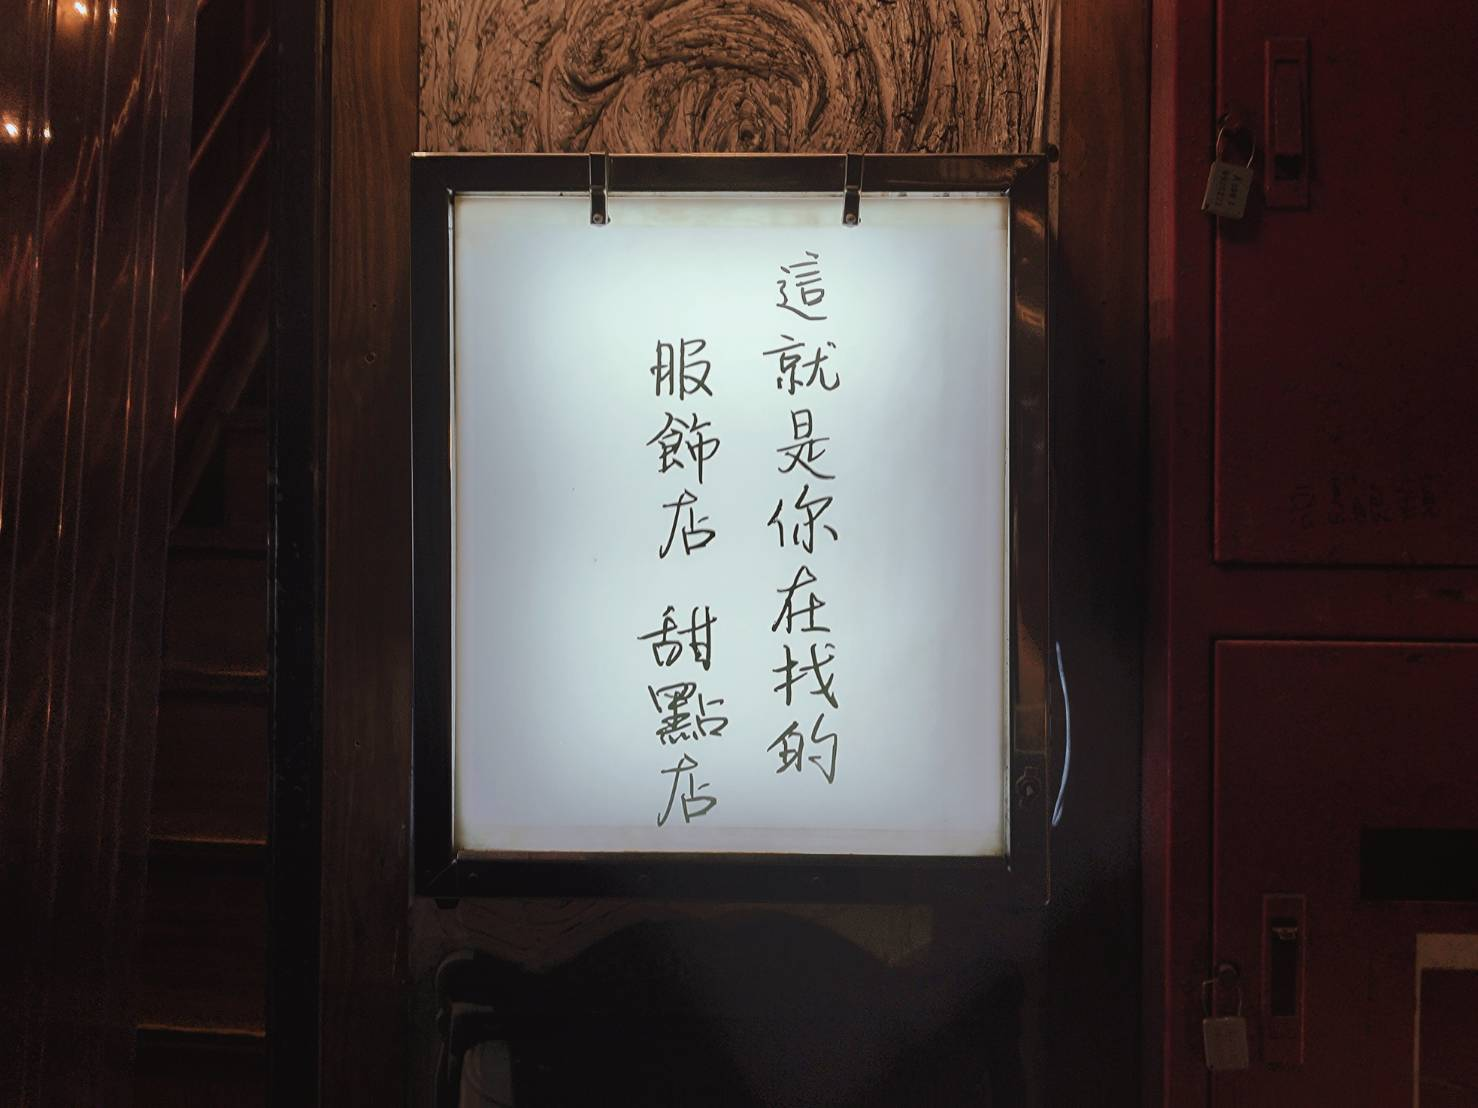 這就是你在找的
服飾店 甜點店